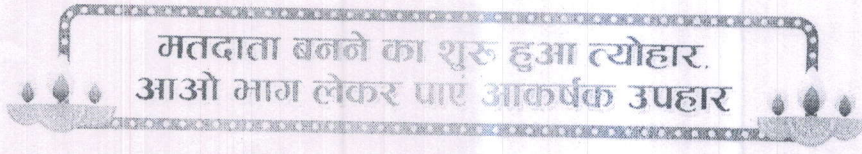 मतदाता बनने का शुरु हुआ त्योहार.
आओ भाग लेकर पाएं आकर्षक उपहार